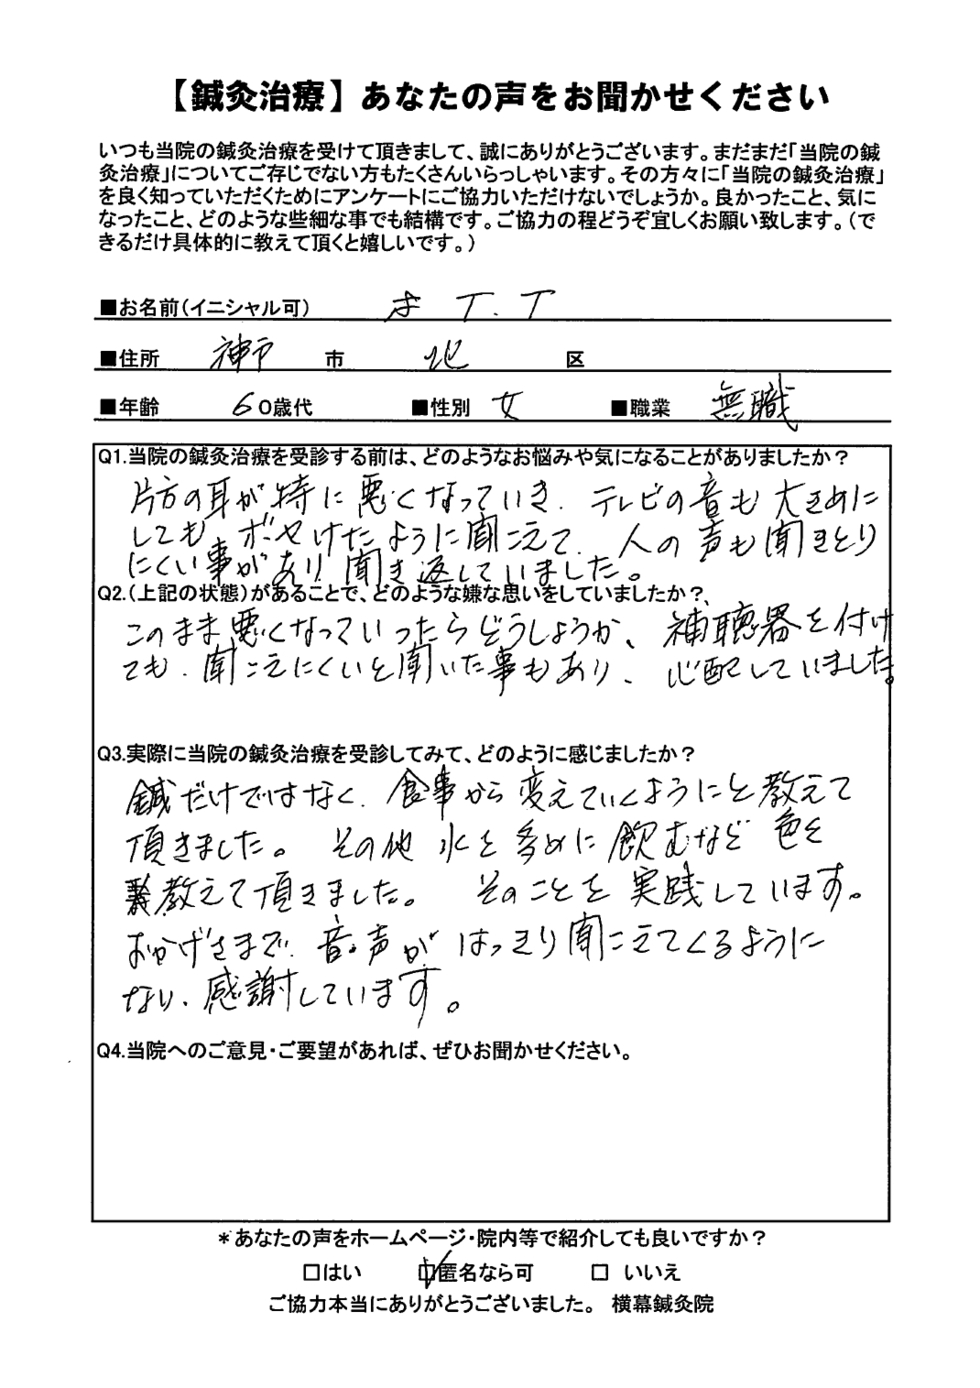 【鍼灸治療】あなたの声をお聞かせください
いつも当院の鍼灸治療を受けて頂きまして、誠にありがとうございます。まだまだ「当院の鍼
灸治療」についてご存じでない方もたくさんいらっしゃいます。その方々に「当院の鍼灸治療」
を良く知っていただくためにアンケートにご協力いただけないでしょうか。良かったこと、気に
なったこと、どのような些細な事でも結構です。ご協力の程どうぞ宜しくお願い致します。（で
きるだけ具体的に教えて頂くと嬉しいです。）
■お名前（イニシャル可） T.T
■住所 神戸 市 北 区
■年齢 60歳代 ■性別 女 ■職業 無職
Q1.当院の鍼灸治療を受診する前は、どのようなお悩みや気になることがありましたか？
片方の耳が特に悪くなっていき、テレビの音も大きめに
しても、ボヤけたように聞こえて、人の声も聞きとり
にくい事があり、聞き返していました。
Q2.（上記の状態）があることで、どのような嫌な思いをしていましたか？
このまま悪くなっていったらどうしようか、補聴器を付け
ても、聞こえにくいと聞いた事もあり、心配していました。
Q3.実際に当院の鍼灸治療を受診してみて、どのように感じましたか？
鍼だけではなく、食事から変えていくようにと教えて
頂きました。その他水を多めに飲むなど色を
教えて頂きました。そのことを実践しています。
おかげさまで、音・声がはっきり聞こえてくるように
なり、感謝しています。
Q4.当院へのご意見・ご要望があれば、ぜひお聞かせください。
＊あなたの声をホームページ・院内等で紹介しても良いですか？
□はい □匿名なら可 □ いいえ
ご協力本当にありがとうございました。 横幕鍼灸院